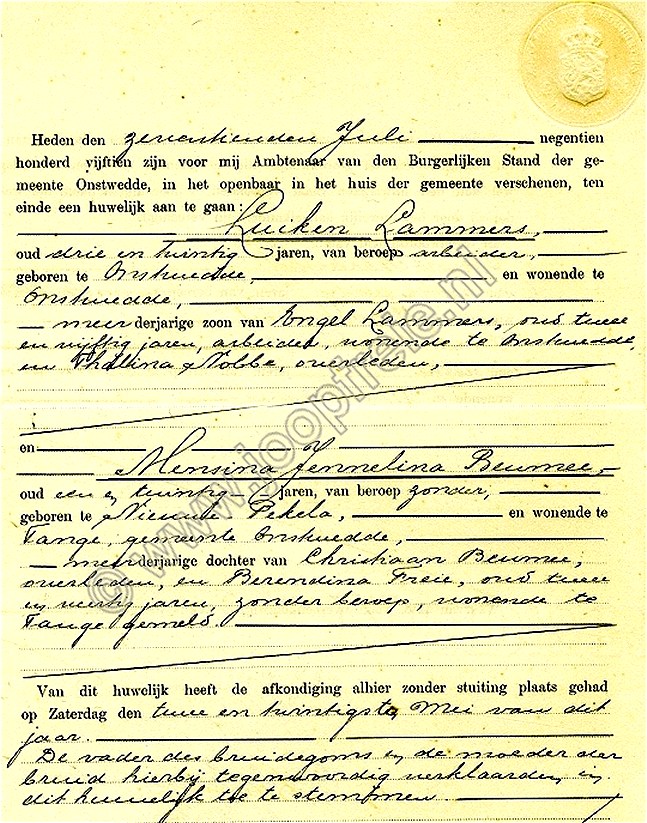 Heden den zeventienden Juli negentien
honderd vijftien zijn voor mij Ambtenaar van den Burgerlijken Stand der ge-
meente Onstwedde, in het openbaar in het huis der gemeente verschenen, ten
einde een huwelijk aan te gaan:
Luiken Lammers,
oud drie en twintig jaren, van beroep arbeider,
geboren te Onstwedde, en wonende te
Onstwedde,
meerderjarige zoon van Engel Lammers, oud twee
en vijftig jaren, arbeider, wonende te Onstwedde,
en Thalina Nobbe, overleden,
en
Mensina Jennelina Beumee,
oud een en twintig jaren, van beroep zonder,
geboren te Nieuwe Pekela, en wonende te
Tange, gemeente Onstwedde,
meerderjarige dochter van Christiaan Beumee,
overleden, en Berendina Freie, oud twee
en veertig jaren, zonder beroep, wonende te
Tange gemeld.
Van dit huwelijk heeft de afkondiging alhier zonder stuiting plaats gehad
op Zaterdag den twee en twintigste Mei van dit
jaar.
De vader des bruidegoms en de moeder der
bruid hierbij tegenwoordig verklaarden in
dit huwelijk toe te stemmen.
© www.jooptreite.nl